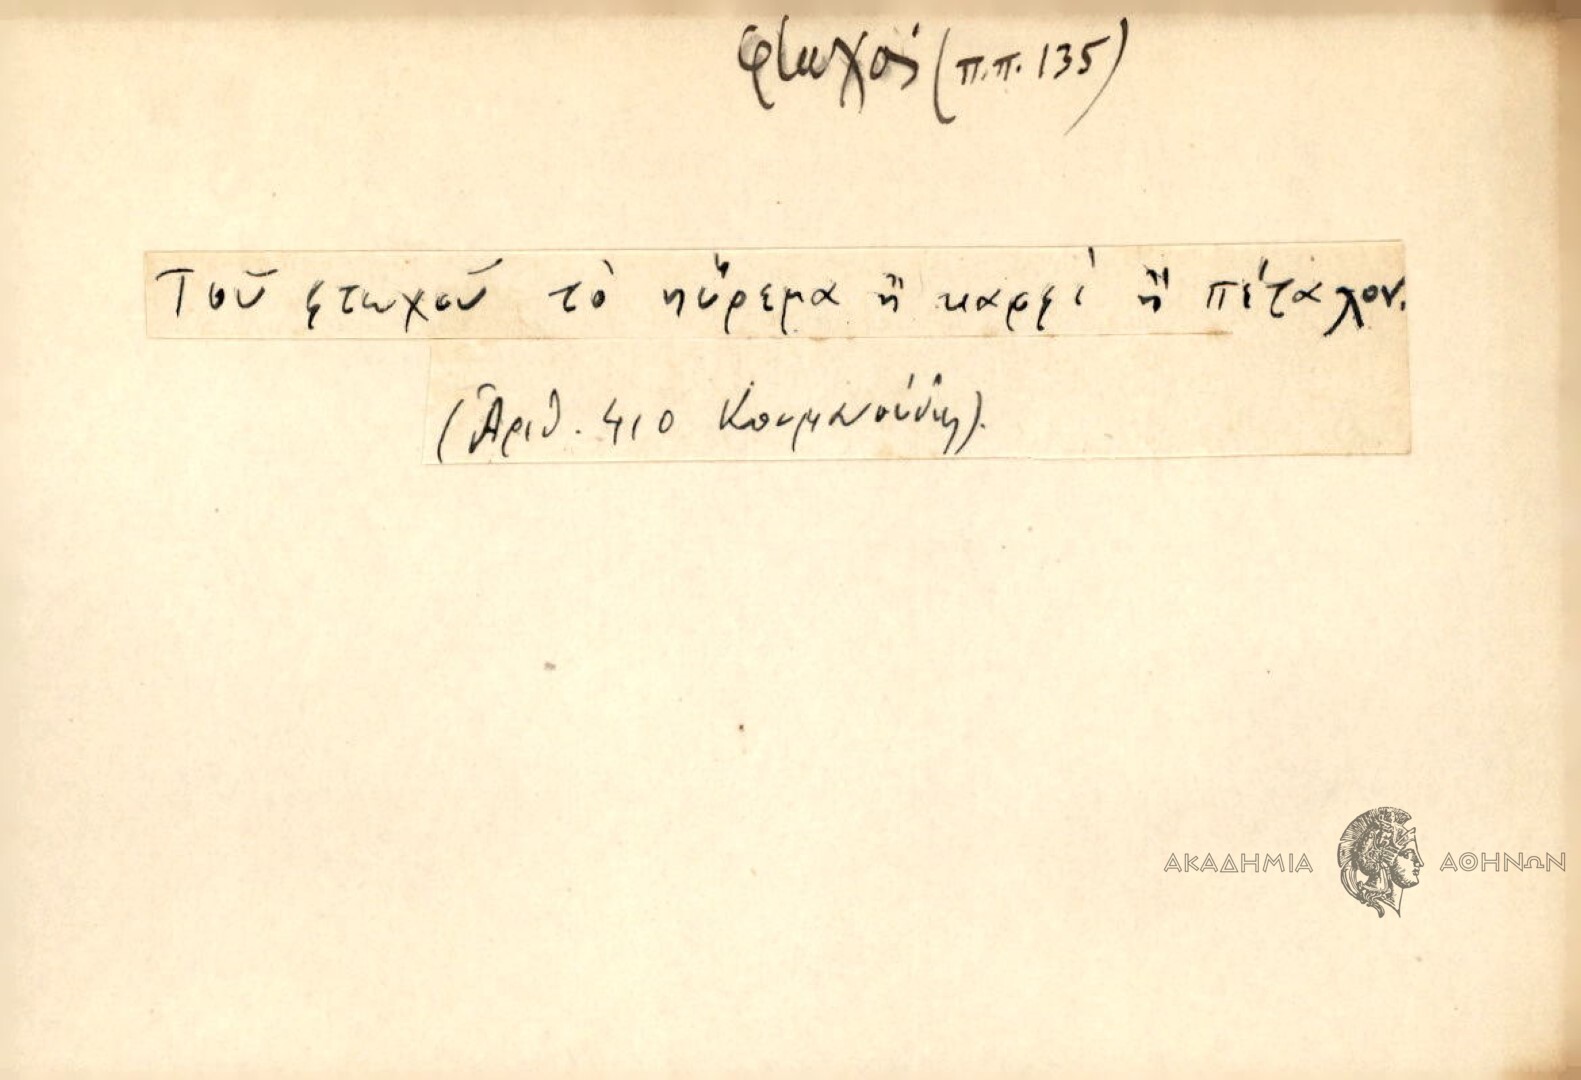 φτωχός (π.π. 135)
Τοῦ φτωχοῦ τὸ ηὕρεμα ἢ καρφὶ ἢ πέταλον.
(Ἀριθ. 410 Κουμανούδη).
ΑΚΑΔΗΜΙΑ ΑΘΗΝΩΝ